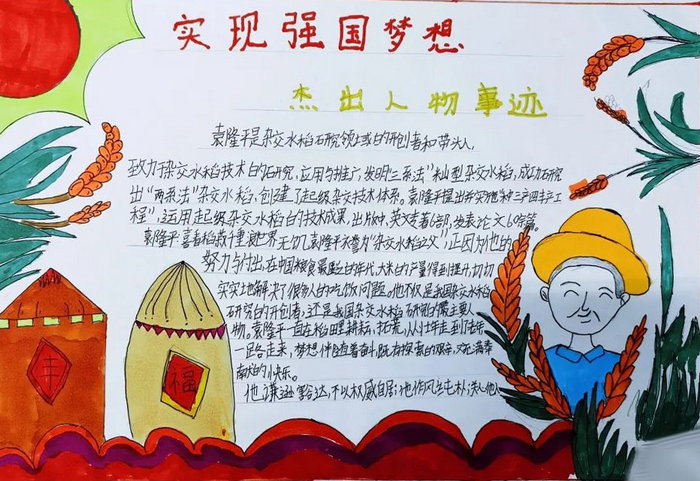 实现强国梦想
杰出人物事迹
袁隆平是杂交水稻研究领域的开创者和带头人,
致力于杂交水稻技术的研究,应用与推广,发明"三系法"籼型杂交水稻,成功研究
出"两系法"杂交水稻,创建了超级杂交技术体系。袁隆平提出并实施"种三产四丰产工
程",运用超级杂交水稻的技术成果,出版中,英文专著6部,发表论文60篇。
袁隆平 喜看稻菽千重 袁隆平被誉为"杂交水稻之父",正因为他的
努力与付出,在中国粮食最 的年代,大米的产量得到提升,切切
实实地解决了很多人的吃饭问题。他不仅是我国杂交水稻
研究的开创者,还是我国杂交水稻 主要人
物。袁隆平一直在稻田里耕耘, 从壮年走到老年
一路走来,梦想伴随着奋斗,既有探索的艰辛,又充满奉
献的快乐。
他谦逊豁达,不以权威自居;他作风 朴,
丰
福